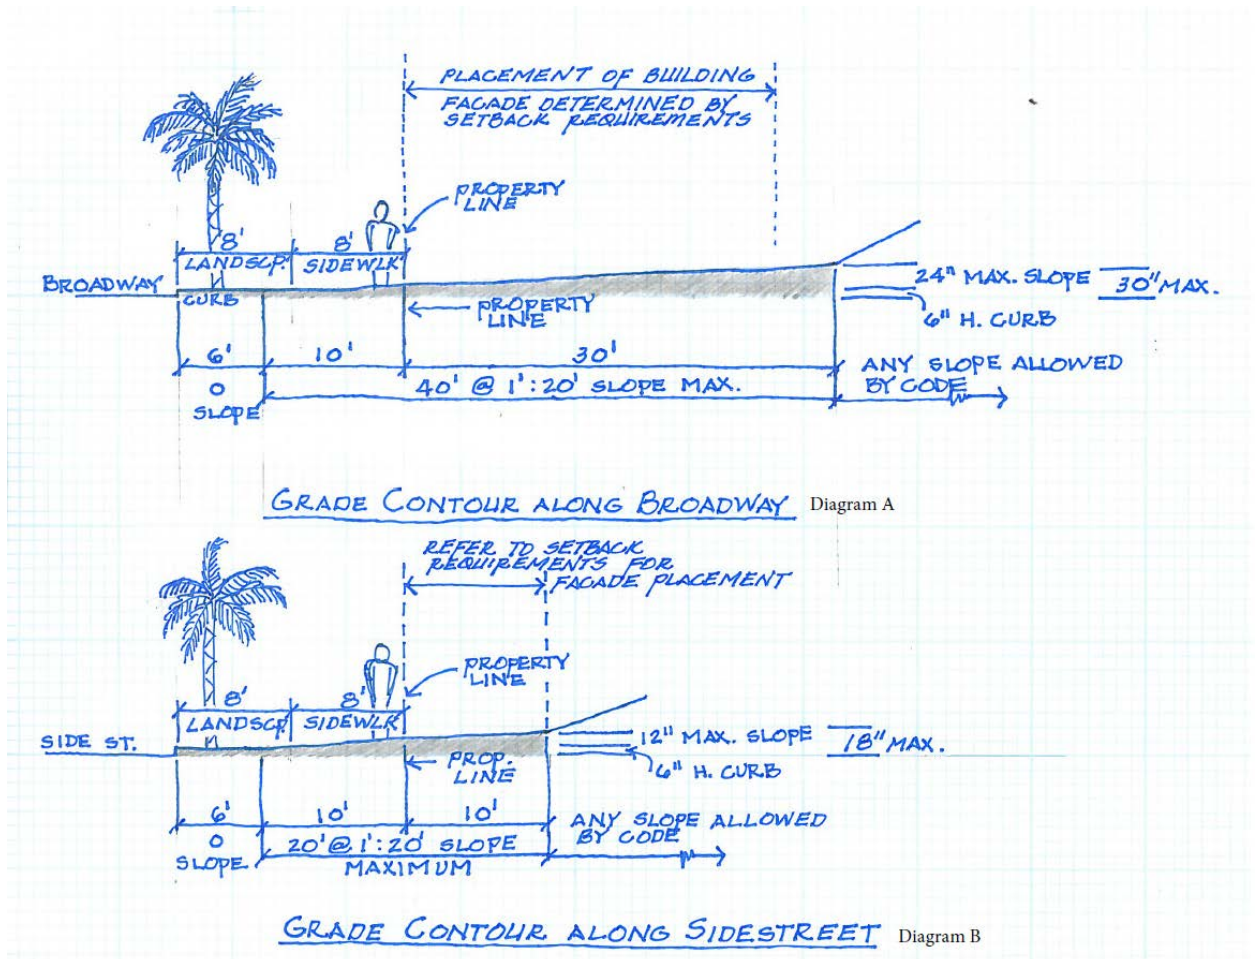 PLACEMENT OF BUILDING
FACADE DETERMINED BY
SETBACK REQUIREMENTS
PROPERTY
LINE
8'
8'
LANDSCP.
SIDEWLK
BROADWAY
CURB
PROPERTY
LINE
24" MAX. SLOPE
30" MAX.
6" H. CURB
6'
10'
30'
ANY SLOPE ALLOWED
BY CODE
0
SLOPE
40' @ 1':20' SLOPE MAX.
GRADE CONTOUR ALONG BROADWAY
Diagram A
REFER TO SETBACK
REQUIREMENTS FOR
FACADE PLACEMENT
PROPERTY
LINE
8'
8'
LANDSCP
SIDEWLK
SIDE ST.
PROP.
LINE
12" MAX. SLOPE
18" MAX.
6" H. CURB
6'
10'
10'
ANY SLOPE ALLOWED
BY CODE
0
SLOPE
20' @ 1':20' SLOPE
MAXIMUM
GRADE CONTOUR ALONG SIDESTREET
Diagram B